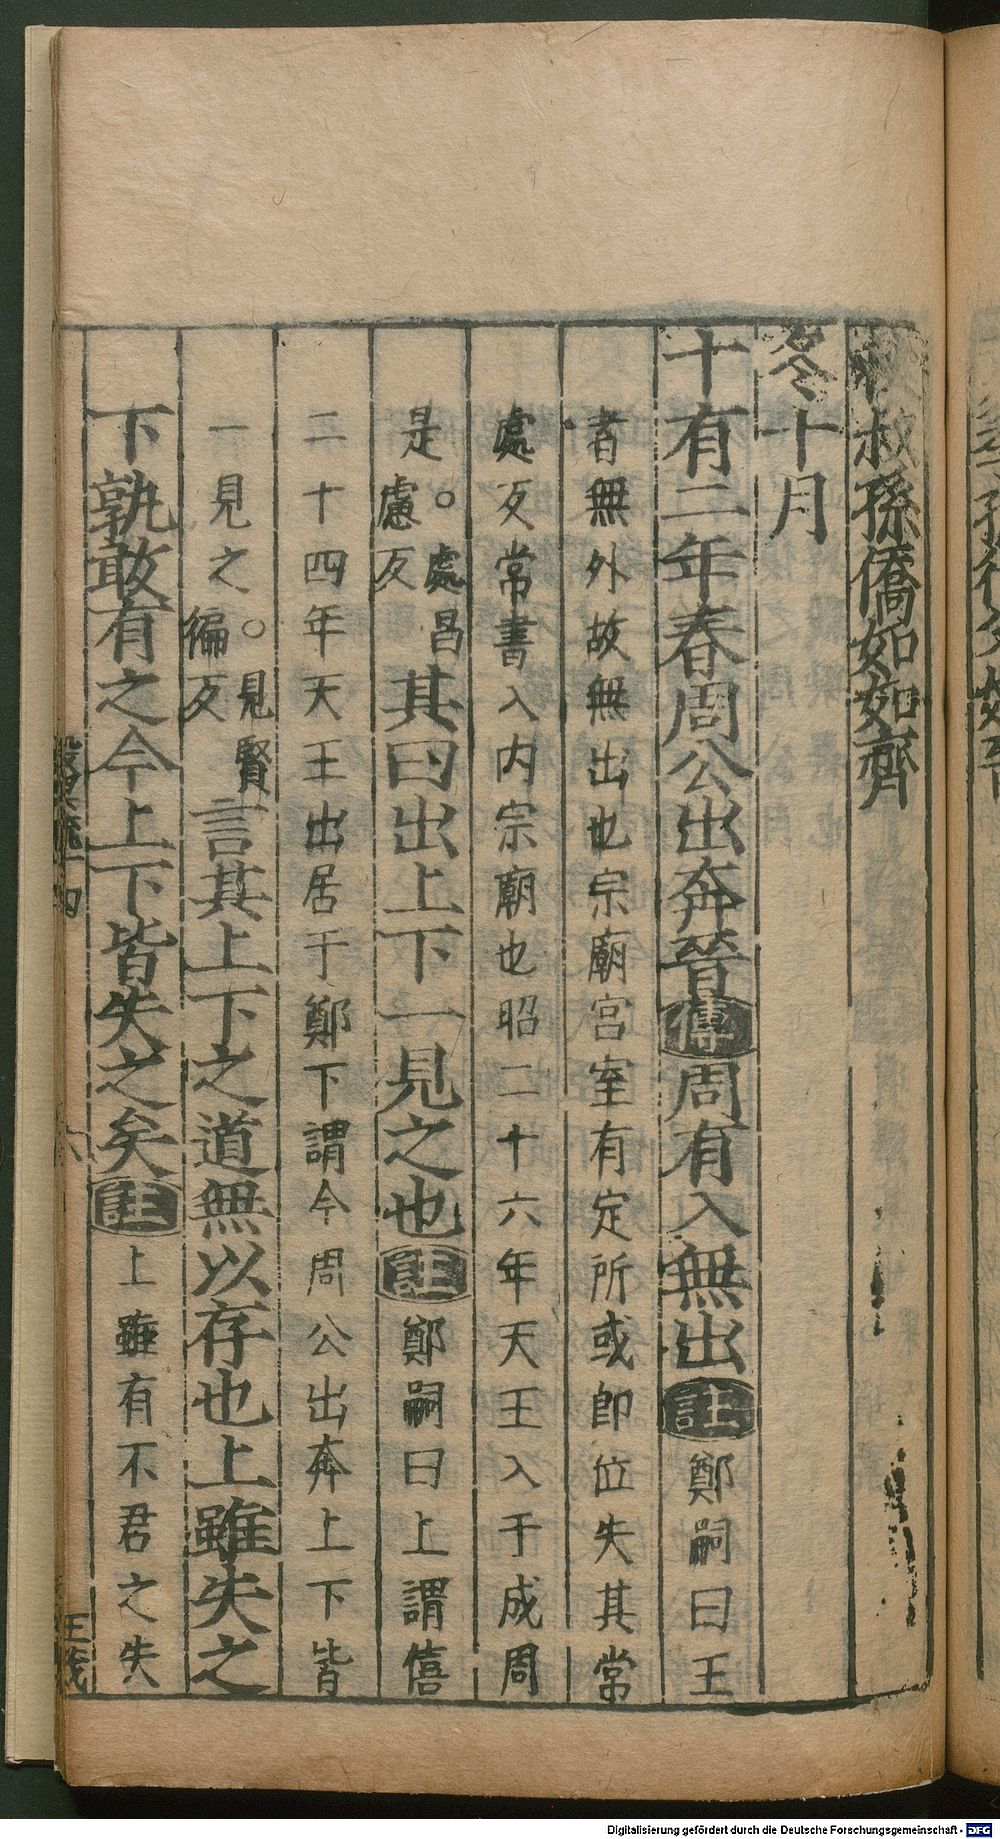 秋叔孫僑如如齊
冬十月
十有二年春周公出奔晉傳周有入無出註鄭嗣曰王
者無外故無出也宗廟宮室有定所或即位失其常
處反常書入内宗廟也昭二十六年天王入于成周
是。處昌慮反其曰出上下一見之也註鄭嗣曰上謂僖
二十四年天王出居于鄭下謂今周公出奔上下皆
一見之。見賢徧反言其上下之道無以存也上雖失之
下孰敢有之今上下皆失之矣註上雖有不君之失
六
Digitalisierung gefördert durch die Deutsche Forschungsgemeinschaft - DFG